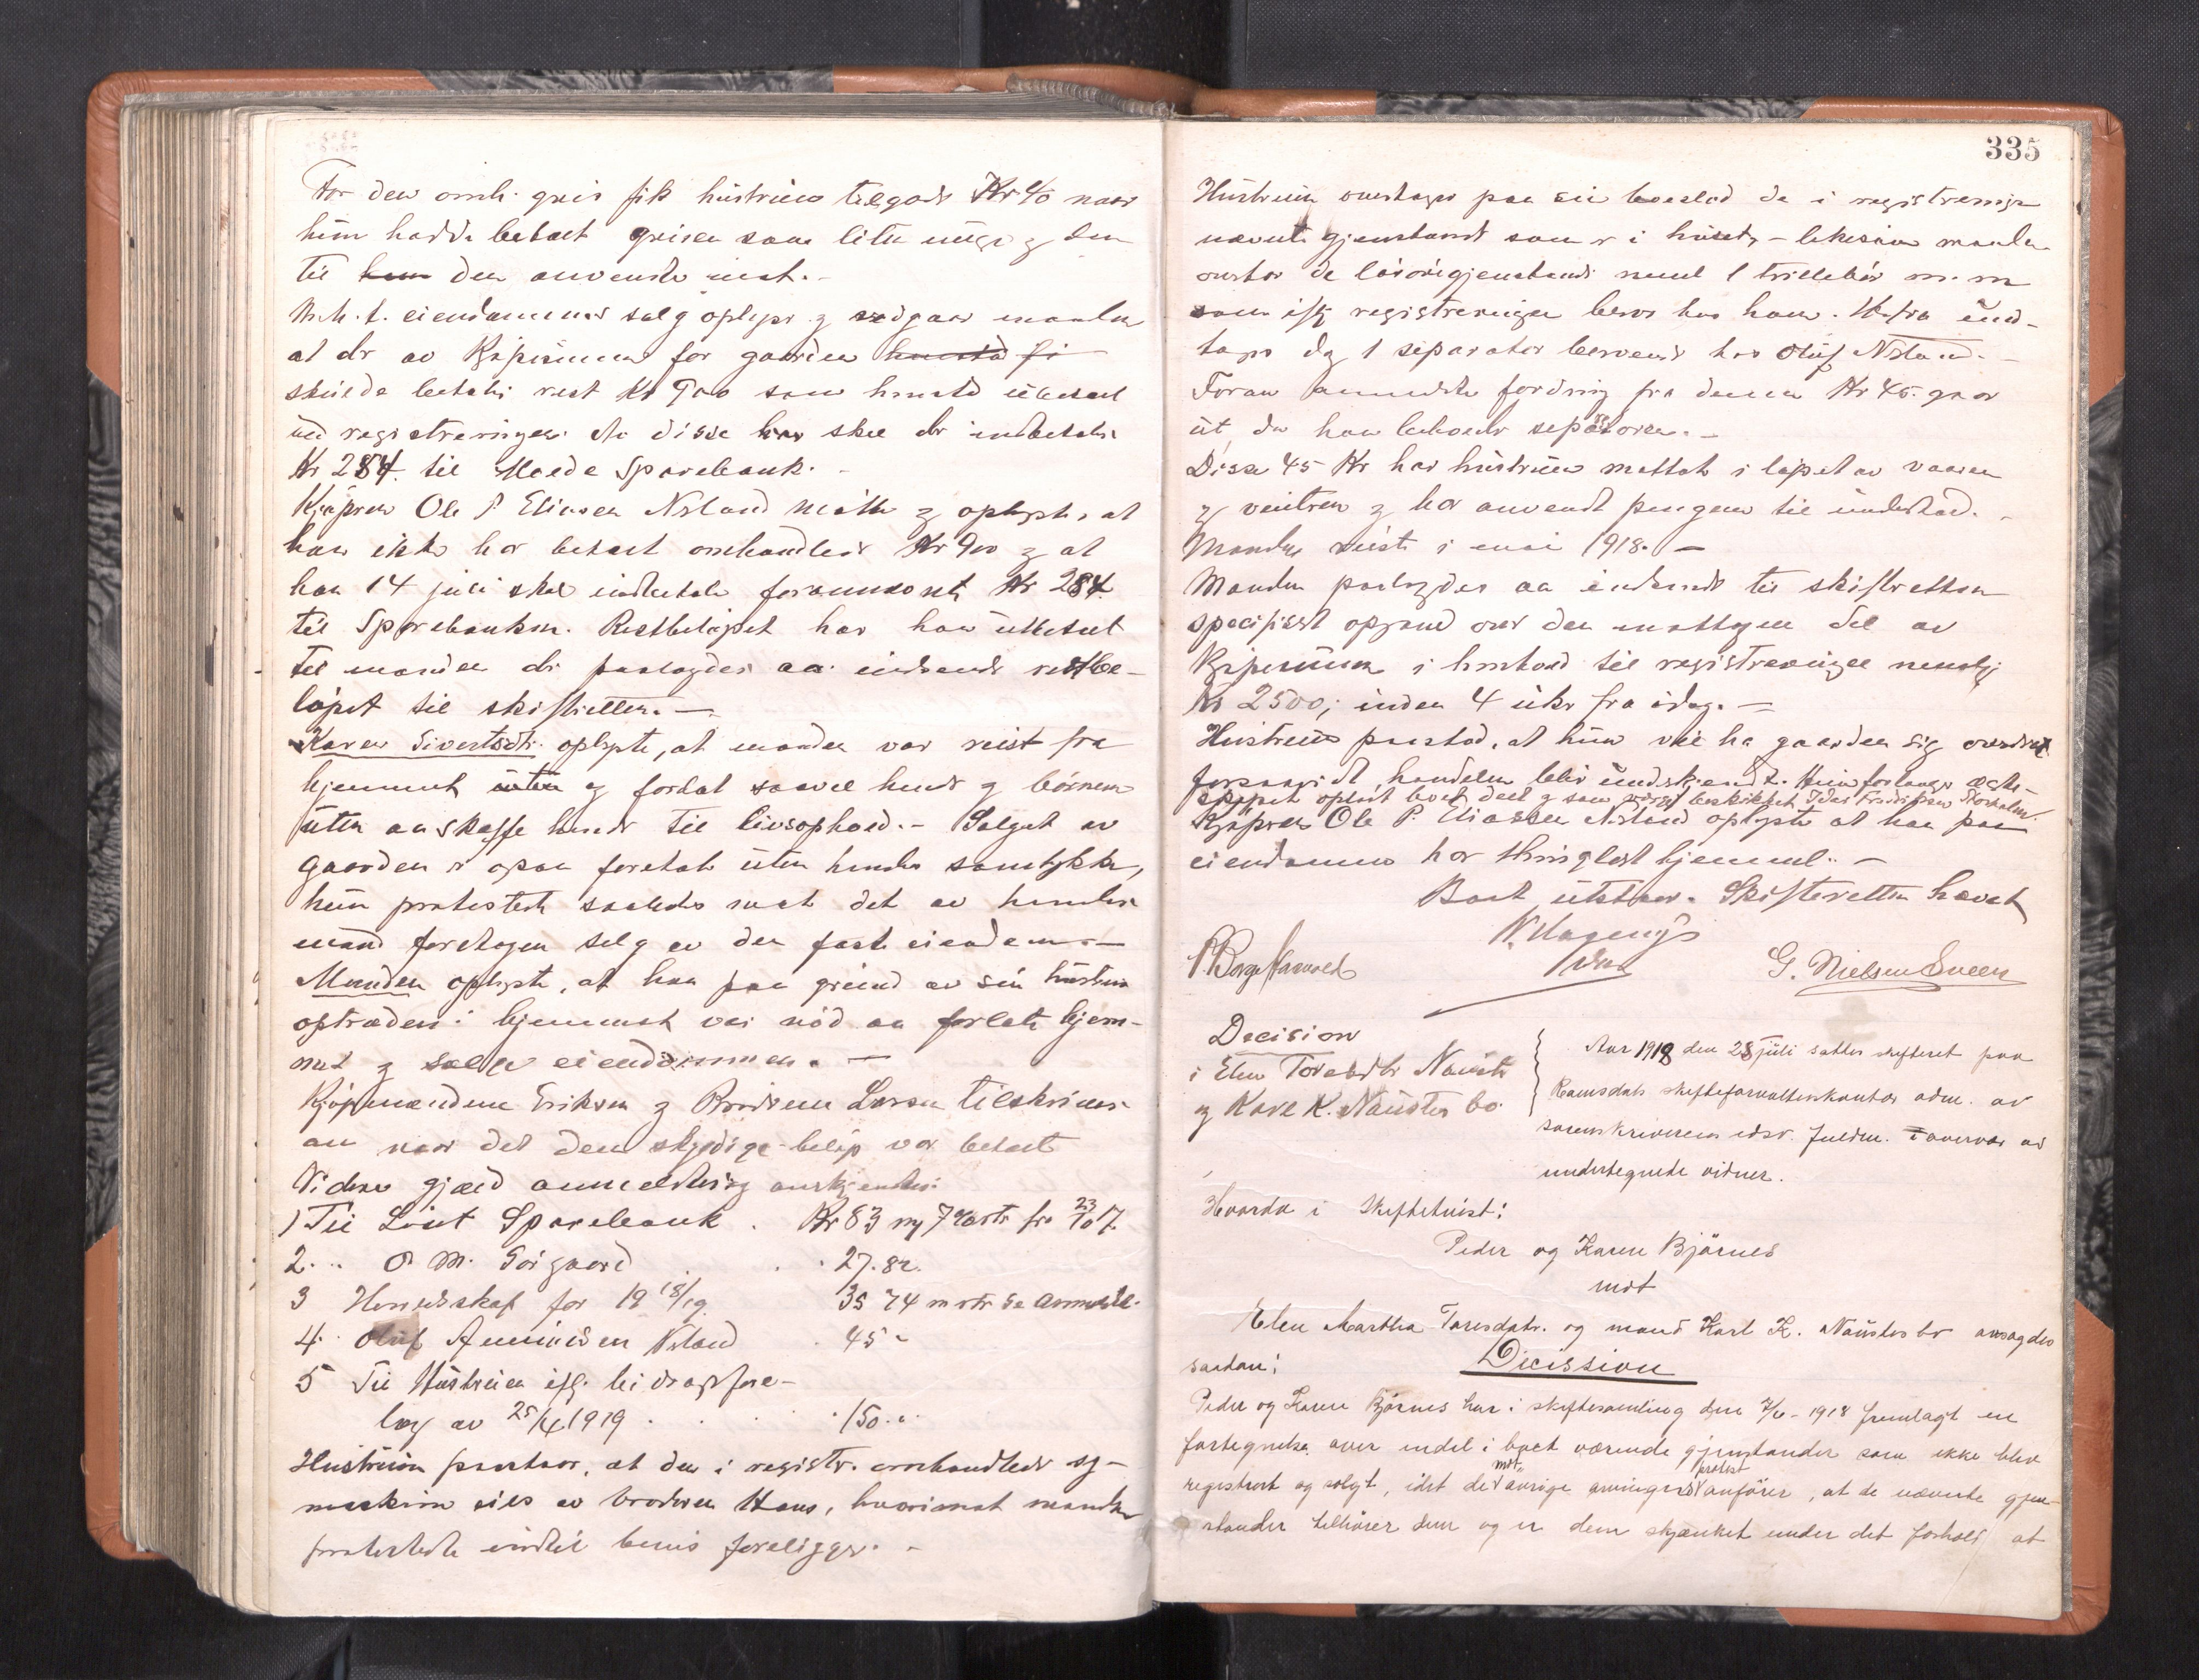 For den omh. gris fik hustruen tilgode Kr 40 naar
hun hadde betalt grisen som liten unge og den
til den anvendte mat.-
M.h.t. eiendommens salg oplyser og vedgaar manden
at der av Kjøpesummen for gaarden
skulde betales rest Kr 900 som henstod ubetalt
ved registreringen. Av disse skal der indbetales
Kr 284. til Molde Sparebank.-
Kjøperen Ole P Eliasen Nsland møtte og oplyste, at
han ikke har betalt omhandlede Kr 900 og at
han 14 juli skal indbetale forannævnte Kr 284
til Sparebanken. Restbeløpet har han utbetalt
til manden der paalagdes aa indsende restbe-
løpet til skifteretten.-
Karen Sivertsdtr. oplyste, at manden var reist fra
hjemmet og forlat saavel hende og børnene
uten aa skaffe hende til livsophold.- Salget av
gaarden er ogsaa foretat uten hendes samtykke,
hun protesterte saaledes mot det av hendes
mand foretagne salg av den faste eiendom.-
Manden oplyste, at han paa grund av sin hustrus
optræden i hjemmet var nød aa forlate hjem-
met og sælge eiendommen.-
Kjøpmændene Eriksen og Brødrene Larsen tilskrives
om naar det dem skyldige beløp var betalt
Videre gjæld anmeldning anerkjendes:
1) Til Sparebank . Kr 83 m 7 % rtr fra 23/10 17
2. .. O. M. Sørgaard . . 27.82.
3 Herredskat for 19 18/19 35 74 m rtr se anmeld.
4. Oluf Amundsen Nsland . 45 -
5 Til Hustruen ifg. bidragsfore-
læg av 25/4 1919 . . . . 150. -
Hustruen paastaar, at den i registr. omhandlede sy-
maskin eies av broderen Hans, hvorimot manden
protesterte indtil bevis foreligger. -
335
Hustruen overtager paa sin boeslod de i registreringen
nævnte gjenstande som er i huset, - likesaa manden
overtar de løsøregjenstande nemlig 1 trillebør m.m
som ifg registreringen beror hos ham. Herfra und-
tages dog 1 separator beroende hos Oluf Nsland.-
Foran anmeldte fordring fra denne Kr 45.- gaar
ut, da han beholder separatoren.-
Disse 45 Kr har hustruen mottat i løpet av vaaren
og vintren og har anvendt pengene til underhold.-
Manden reiste i mai 1918.-
Manden paalagdes aa indsende til skifteretten
specifisert opgave over den mottagne del av
Kjøpesummen i henhold til registreringen nemlig
Kr 2500,- inden 4 uker fra idag.-
Hustruen paastod, at hun vil ha gaarden sig overdrat
forsaavidt handelen blir underkjendt. Hun forlanger ægte-
skapet opløst boet delt og som værge beskikket Peder Fredriksen Storholm.
Kjøperen Ole P. Eliassen Nsland oplyste at han paa
eiendommen har thinglæst hjemmel.-
Boet utstaar. Skifteretten hævet
P. Borge Harvold
G. Nielsen Sveen
Decision
i Elen Toresdtr Nauste
og Karl K. Naustes bo.
Aar 1918 den 28 juli sattes skifteret paa
Romsdals skifteforvalterkontor adm. av
sorenskriverens edsv. fuldm. i overvær av
undertegnede vidner.
Hvorda i Skiftetvist:
Peder og Karen Bjørnes
mot
Elen Martha Toresdatr. og mand Karl K. Naustes bo avsagdes
saadan:
Dicission
Peder og Karen Bjørnes har i skiftesamling den 7/6- 1918 fremlagt en
fortegnelse over endel i boet værende gjenstander som ikke blev
registrert og solgt, idet de mot øvrige arvingers protest anfører, at de nævnte gjen-
stander tilhører dem og er dem skjænket under det forhold at